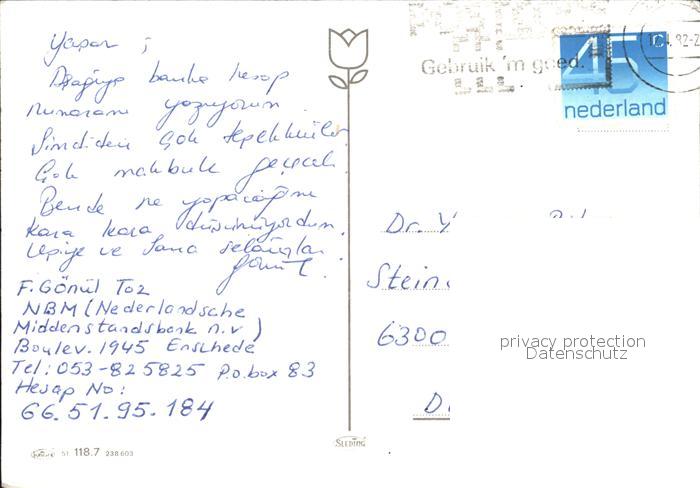 Yaşar ;
Aşağıya banka hesap
numaramı yazıyorum
Şimdiden çok teşekkürler
Çok makbule geçecek
Bende ne yapacağımı
kara kara düşünüyordum.
Ueşiye ve Sana selamlar
Gönül.
F. Gönül Toz
NBM (Nederlandsche
Middenstandsbank n.v)
Boulev. 1945 Enshede
Tel: 053-825825 P.o.box 83
Hesap No:
66.51.95.184
51 118.7 238 603
SLEDING
Gebruik 'm goed.
45c
nederland
Dr. Y
Stein
6300
D
privacy protection
Datenschutz